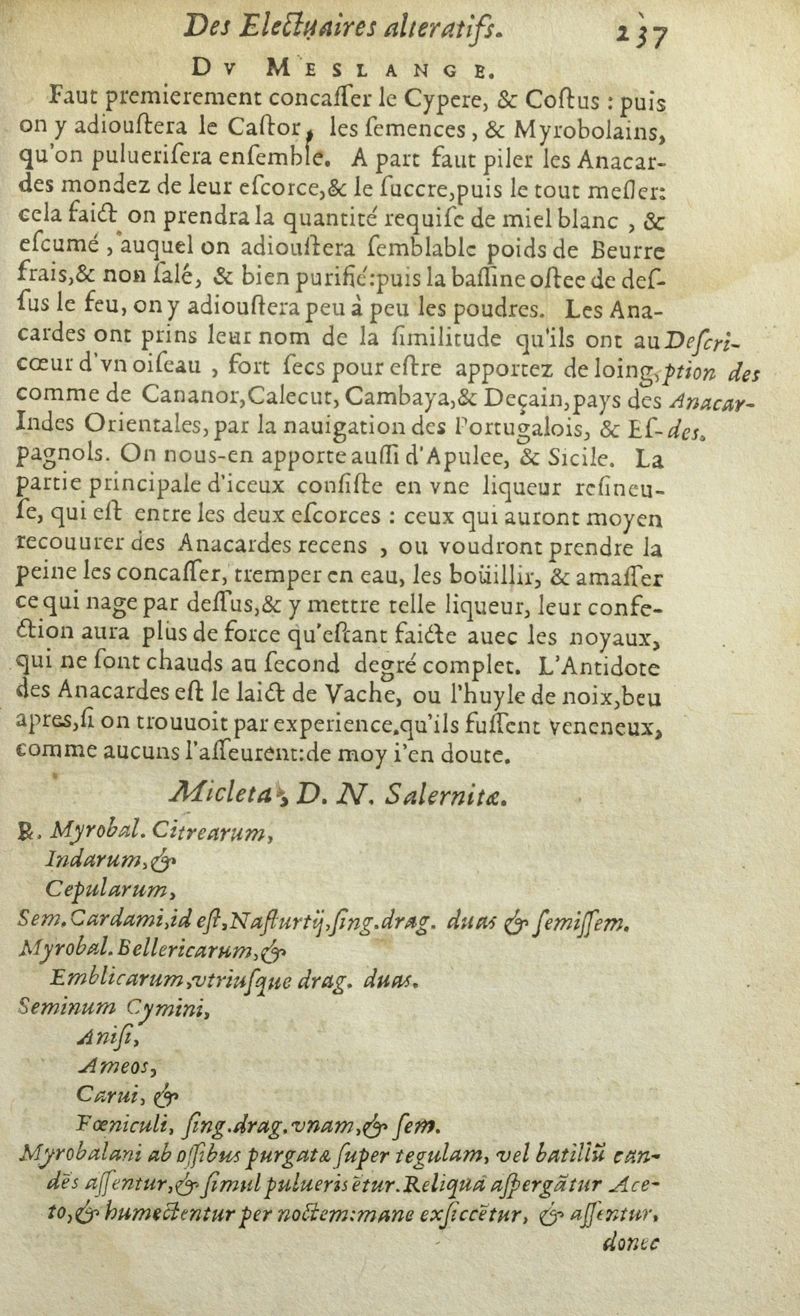 Des Electuaires alteratifs. 237
DV MESLANGE.
Faut premierement concasser le Cypere, & Costus : puis
on y adioustera le Castor, les semences, & Myrobolains,
qu'on puluerisera ensemble. A part faut piler les Anacar-
des mondez de leur escorce,& le succre,puis le tout mesler:
cela faict on prendra la quantité requise de miel blanc , &
escumé , auquel on adioustera semblable poids de Beurre
frais,& non salé, & bien purifié:puis la bassine ostee de des-
sus le feu, on y adioustera peu à peu les poudres. Les Ana-
cardes ont prins leur nom de la similitude qu'ils ont au Descri-
cœur d'vn oiseau , fort secs pour estre apportez de loing, ption des
comme de Cananor,Calecut, Cambaya,& Deçain,pays des Anacar-
Indes Orientales, par la nauigation des Portugalois, & Es- des.
pagnols. On nous-en apporte aussi d'Apulee, & Sicile. La
partie principale d'iceux consiste en vne liqueur resineu-
se, qui est entre les deux escorces : ceux qui auront moyen
recouurer des Anacardes recens , ou voudront prendre la
peine les concasser, tremper en eau, les boüillir, & amasser
ce qui nage par dessus,& y mettre telle liqueur, leur confe-
ction aura plus de force qu'estant faicte auec les noyaux,
qui ne sont chauds au second degré complet. L'Antidote
des Anacardes est le laict de Vache, ou l'huyle de noix,beu
apres,si on trouuoit par experience.qu'ils fussent veneneux,
comme aucuns l'asseurent:de moy i'en doute.
Micleta, D. N. Salernitæ.
℞. Myrobal. Citrearum,
Indarum,&
Cepularum,
Sem. Cardami,id est,Nasturtij,sing.drag. duas & semissem.
Myrobal. Bellericarum,&
Emblicarum,vtriusque drag. duas.
Seminum Cymini,
Anisi,
Ameos,
Carui, &
Fœniculi, sing.drag.vnam,& sem.
Myrobalani ab ossibus purgatæ super tegulam, vel batillũ can-
dẽs assentur,& simul pulueris ẽtur.Reliqua aspergãtur Ace-
to,& humectentur per noctem:mane exsiccẽtur, & assentur,
donec